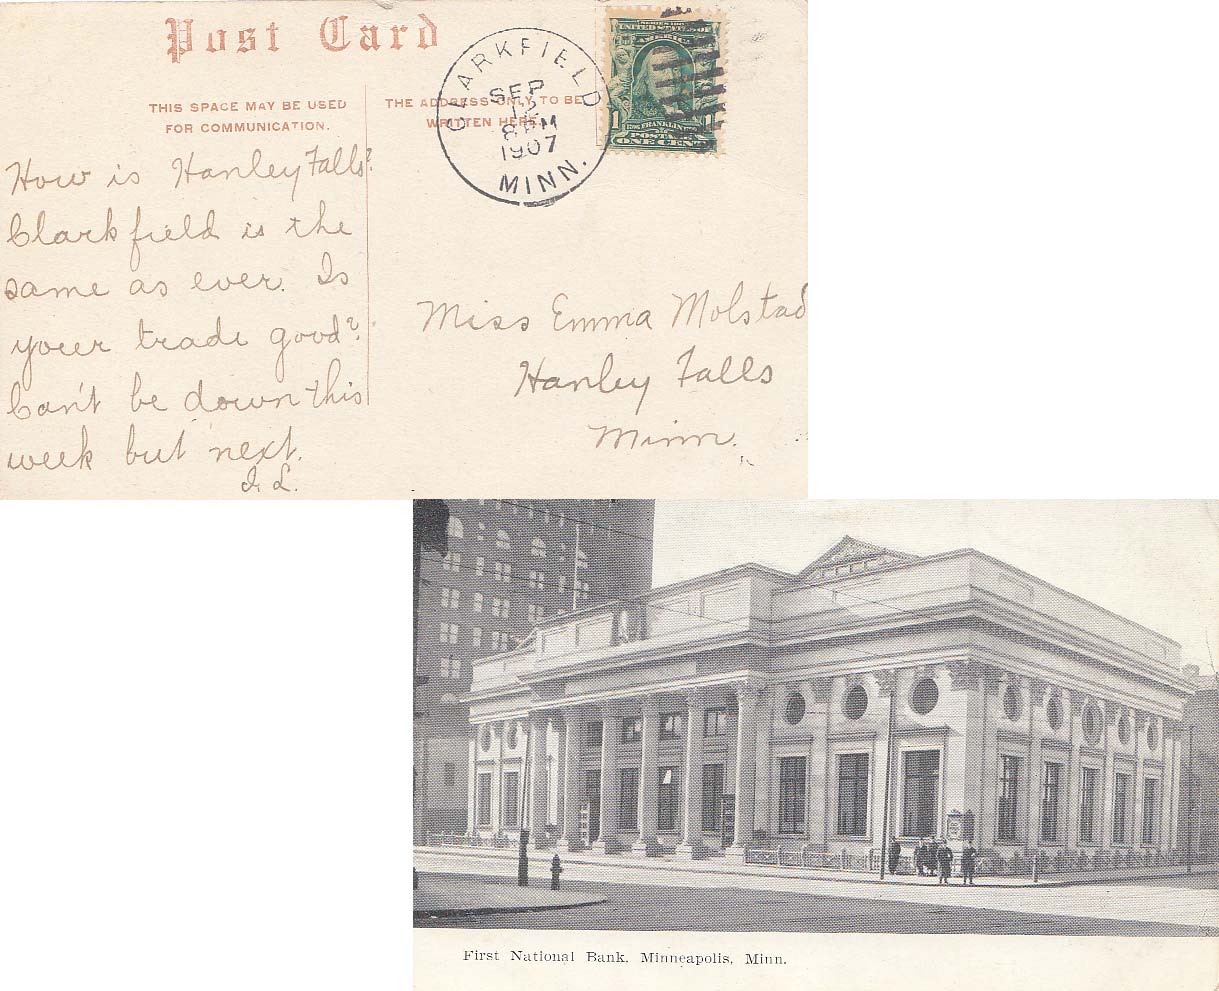 Post Card
THIS SPACE MAY BE USED
FOR COMMUNICATION.
THE ADDRESS ONLY TO BE
WRITTEN HERE.
CLARKFIELD
SEP
12
8 PM
1907
MINN.
UNITED STATES OF
AMERICA
1 FRANKLIN 1
POSTAGE
ONE CENT
How is Hanley Falls?
Clarkfield is the
same as ever. Is
your trade good?
Can't be down this
week but next.
Miss Emma Molstad
Hanley Falls
Minn.
First National Bank, Minneapolis, Minn.